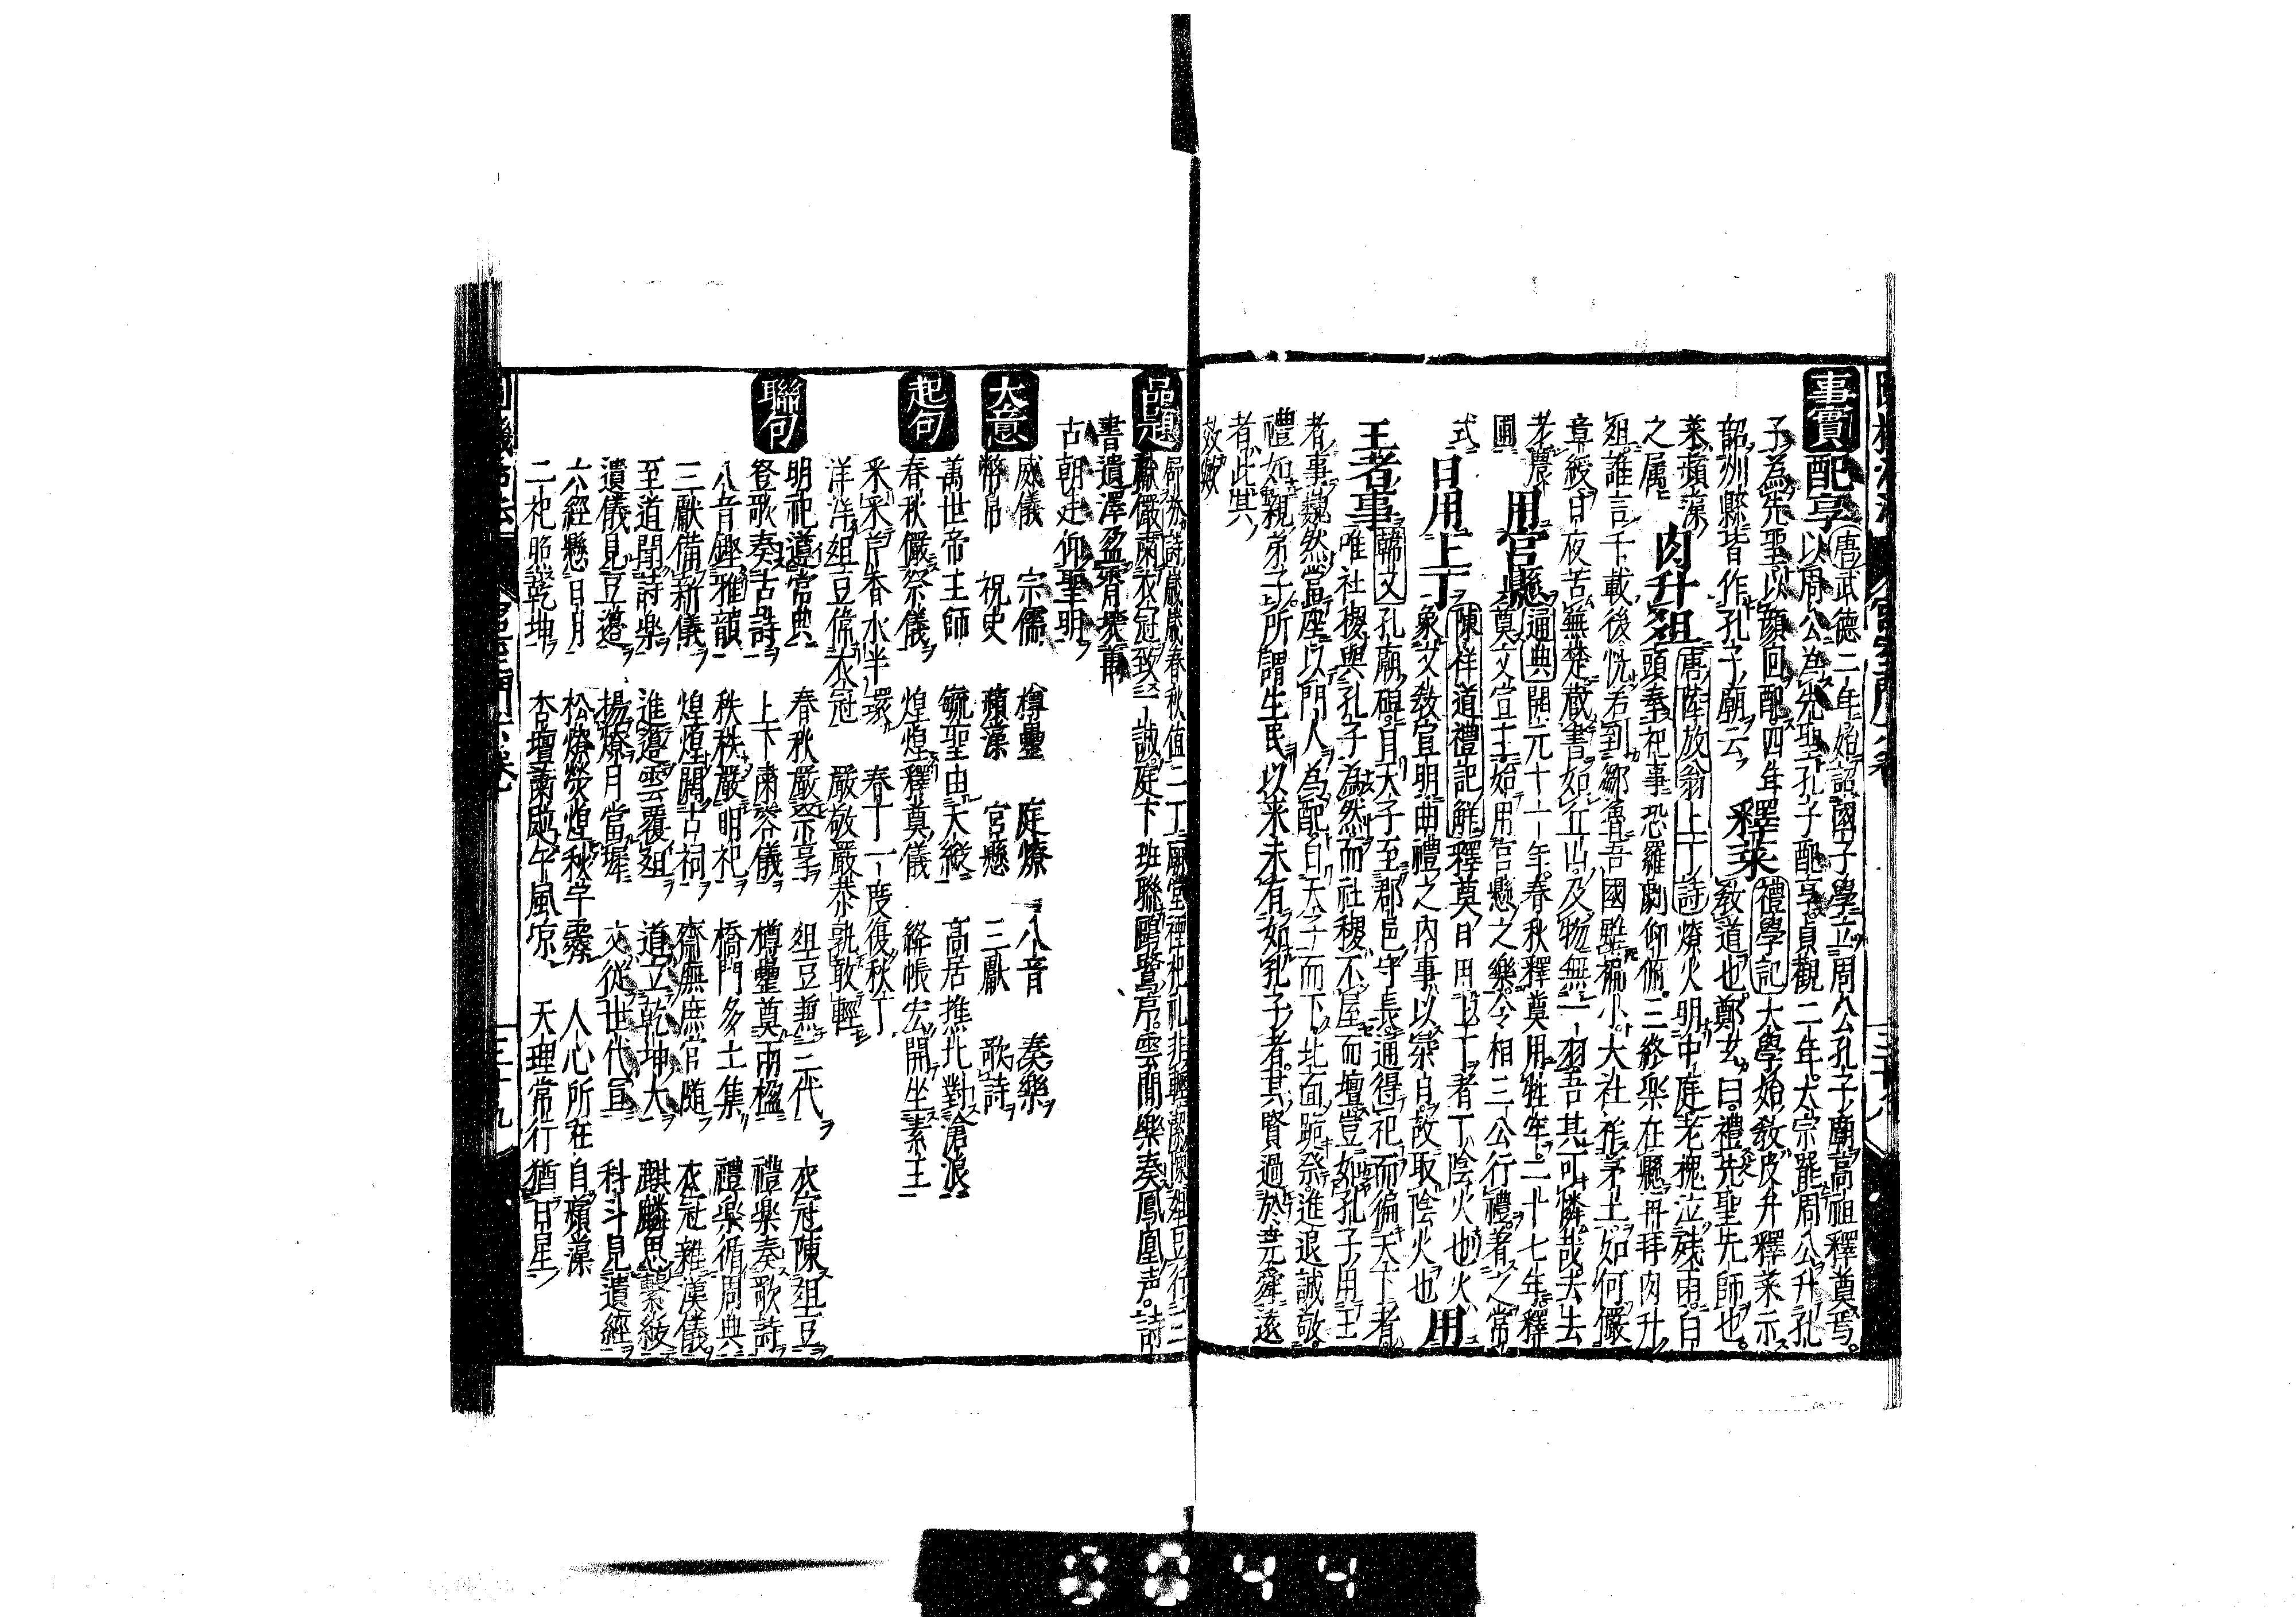 事實 配享 唐武德二年始詔國子學立周公孔子廟高祖釋奠焉
以周公為先聖孔子配享貞觀二年太宗罷周公升孔
子為先聖以顏回配四年
詔州縣皆作孔子廟云 釋菜 禮學記 大學始教皮弁釋菜示
教道也鄭玄曰禮先聖先師也
菜蘋藻
之属 肉升俎 唐陸放翁上丁詩 燎火明中庭老槐泣残雨白
頭奉祀事恐羅劇仰俯三終樂在懸再拜肉升
俎誰言千載後恍若到鄒魯吾國雖褊小大社祚茅土如何儼
章綬日夜苦蕪楚蔵書如丘山及物無一羽吾其可憐哉去去
老農
圃 用宮懸 通典 開元十一年春秋釋奠用牲牢二十七年釋
奠文宣王始用宮懸之樂令相三公行禮著之常
式 日用上丁 陳祥道禮記解 釋奠日用上丁者丁陰火也火
象文教宣明曲禮之内事以柔日故取陰火也 用
王者事 韓文 孔廟碑自天子至郡邑守長通得祀而徧天下者
唯社稷與孔子為然而社稷不屋而壇豈如孔子用王
者事巍然當座以門人為配自天子而下北面跪祭進退誠敬
禮如親弟子所謂生民以来未有如孔子者其賢過於堯舜遠
者此其
效歟
品題
獻儼肅衣冠致一誠庭下班聯鵷鷺序雲間樂奏鳳凰声詩
書遺澤
古朝廷仰聖明
大意 威儀 宗儒 樽罍 庭燎 八音 奏樂
幣帛 祝史 蘋藻 宮懸 三獻 歌詩
起句 萬世帝王師 毓聖由天縱 高居推北對滄浪
春秋儼祭儀 煌煌釋奠儀 絳帳宏開坐素王
釆釆芹香水半環 春丁一度復秋丁
洋洋俎豆備衣冠 嚴敬嚴恭孰敢輕
聯句 明祀遵常典 春秋嚴祭享 俎豆兼三代 衣冠陳俎豆
登歌奏古詩 上下肅容儀 樽罍奠兩楹 禮樂奏歌詩
八音鏗雅韻 秩秩嚴明祀 橋門多士集 禮樂循周典
三獻備新儀 煌煌闢古祠 齋廡庶官随 衣冠雜漢儀
至道聞詩樂 進邊雲覆俎 道立乾坤大 麒麟思繫紱
遺儀見豆籩 揚燎月當墀 文從世代宣 科斗見遺經
六經懸日月 松燎熒煌秋早霽 人心所在自蘋藻
二祀照乾坤 杏壇肅颯午風凉 天理常行猶日星
0044